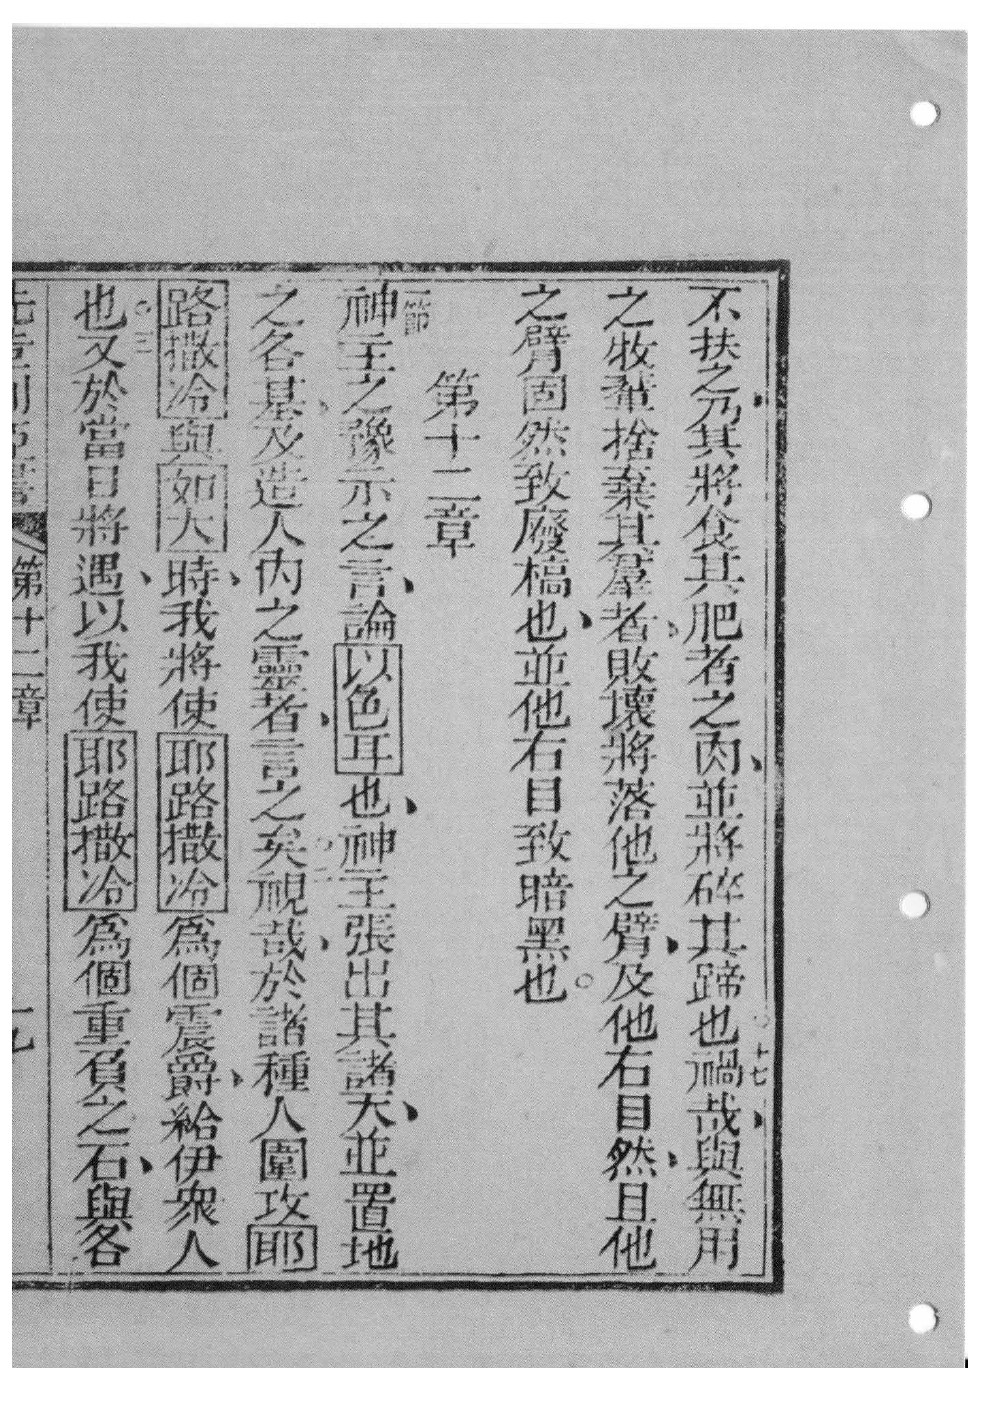 不扶之、乃其將食其肥者之肉、並將碎其蹄也。十七禍哉、與無用
之牧輩捨棄其羣者、敗壞將落他之臂、及他右目然、且他
之臂固然致廢槁也、並他右目致暗黑也。
第十二章
一節神主之豫示之言、論以色耳也、神主張出其諸天、並置地
之各基、及造人內之靈者、言之矣。二視哉、於諸種人圍攻耶
路撒冷與如大時、我將使耶路撒冷爲個震爵、給伊衆人
也。三又於當日將遇、以我使耶路撒冷爲個重負之石、與各
第十二章